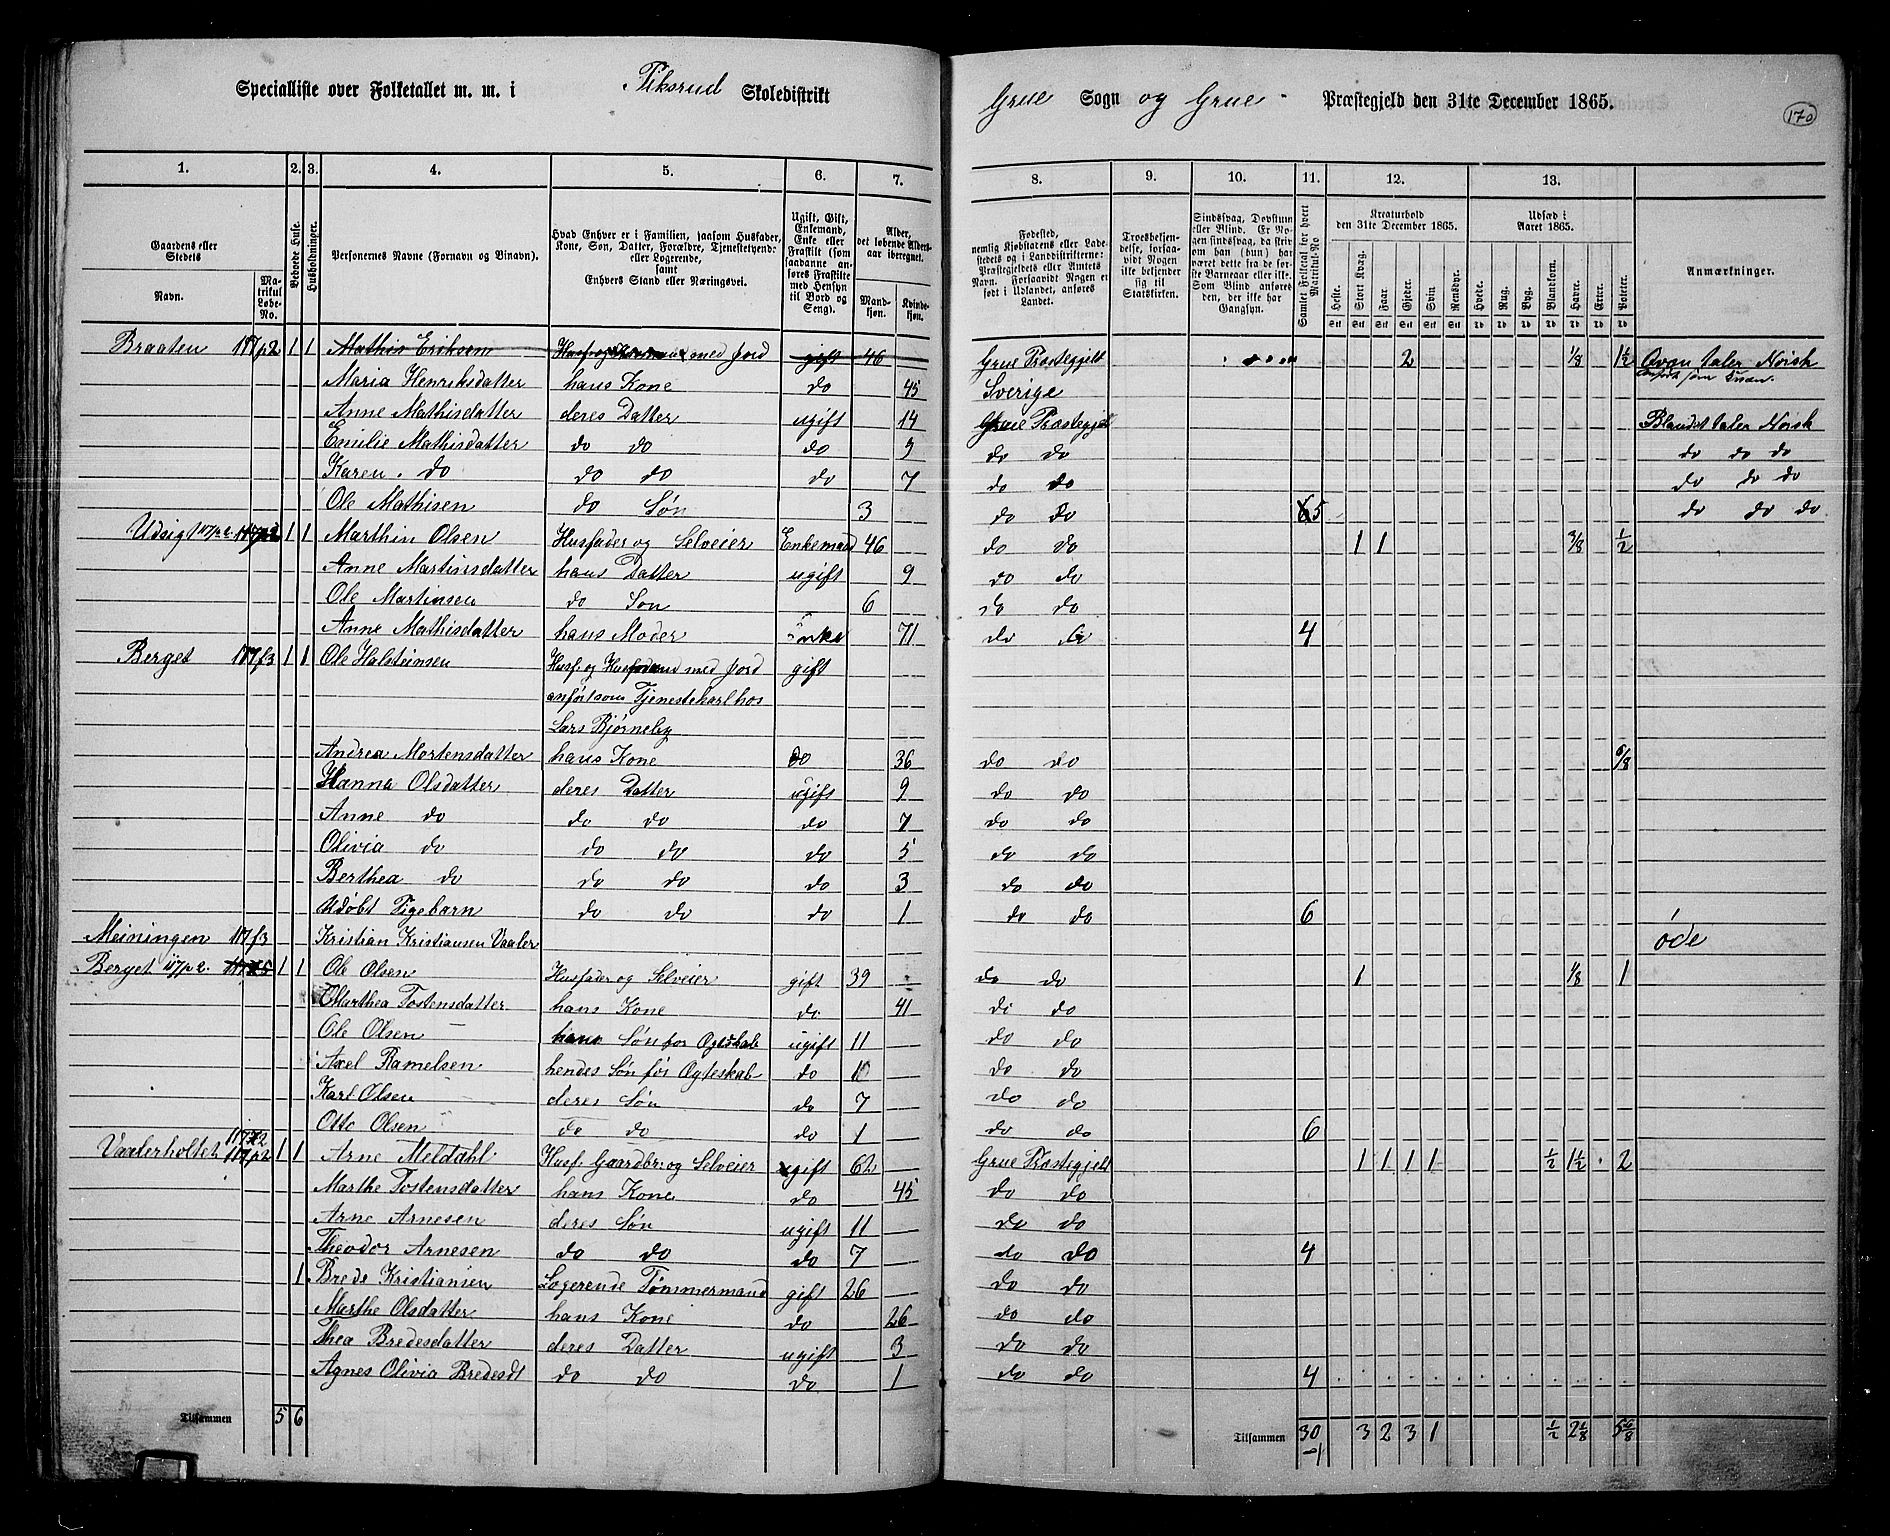 Specialliste over Folketallet m. m. i Piksrud Skoledistrikt Grue Sogn og Grue Præstegjeld den 31te December 1865.
170
1. 2. 3. 4. 5. 6. 7. 8. 9. 10. 11. 12. 13.
Gaardens eller Stedets Navn. Matrikul Løbe-No.
Beboede Huse.
Husholdninger.
Personernes Navne (Fornavn og Binavn).
Hvad Enhver er i Familien, saasom Husfader, Kone, Søn, Datter, Forældre, Tjenestetyende eller Logerende, samt Enhvers Stand eller Næringsvei.
Ugift, Gift, Enkemand, Enke eller Fraskilt (som saadanne anføres Fraskilte med Hensyn til Bord og Seng).
Alder, det løbende Aldersaar iberegnet. Mandkjøn. Kvindekjøn.
Fødested, nemlig Kjøbstadens eller Ladestedets og i Landdistrikterne: Præstegjeldets eller Amtets Navn. Forsaavidt Nogen er født i Udlandet, anføres Landet.
Troesbekjendelse, forsaavidt Nogen ikke bekjender sig til Statskirken.
Sindssvag, Døvstum eller Blind. Er Nogen sindssvag, da skriv om han (hun) har været dette fra de første Barneaar eller ikke. Som Blind anføres den, der ikke har Gangsyn.
Samlet Folketal for hvert Matrikul-No
Kreaturhold den 31te December 1865. Heste. Stort Kvæg. Faar. Gjeder. Svin Rensdyr.
Udsæd i Aaret 1865. Hvede. Rug. Byg. Blandkorn. Havre. Erter. Poteter.
Anmærkninger.
Braaten 117p2 1 1 Mathis Eriksen Husf. og Husmand med Jord gift 46 Grue Præstegjelt 2 1/8 1½ Qven taler Norsk
anført som Kvæn.
Maria Henriksdatter hans Kone do 45 Sverige
Anne Mathisdatter deres Datter ugift 14 Grue Præstegjelt Blandet taler Norsk
Emilie Mathisdatter do do do 9 do do do do do
Karen do do do do 7 do do do do do
Ole Mathisen do Søn 3 do do 5 do do do
Udsigt 117p2 1 1 Marthin Olsen Husfader og Selveier Enkemand 46 do do 1 1 3/8 ½
Anne Martinsdatter hans Datter ugift 9 do do
Ole Martinsen do Søn 6 do do
Anne Mathisdatter hans Moder Enke 71 do do 4
Berget 117f3 1 1 Ole Halsteinsen Husf. og Husmand med Jord gift
anført som Tjenestekarl hos
Lars Bjørneby
Andrea Mortensdatter hans Kone do 36 do do 6/8
Hanna Olsdatter deres Datter ugift 9 do do
Anne do do do do 7 do do
Olivia do do do do 5 do do
Berthea do do do do 3 do do
Udøbt Pigebarn do do do 1 do do 6
Meiningen 117f3 Kristian Kristiansen Vaaler øde
Berget 117p2. 1 1 Ole Olsen Husfader og Selveier gift 39 do do 1 1/8 1
Marthea Tostensdatter hans Kone do 41 do do
Ole Olsen hans Søn for Ægteskab ugift 11 do do
Axel Ramelsen hendes Søn før Ægteskab do 10 do do
Karl Olsen deres Søn do 7 do do
Otto Olsen do do do 1 do do 6
Vaalerholtet 117p2 1 1 Arne Meldahl Husf. Gaardbr. og Selveier gift 62 Grue Præstegjelt 1 1 1 1 ½ 1½ 2
Marthe Tostensdatter hans Kone do 45 do do
Arne Arnesen deres Søn ugift 11 do do
Theodor Arnesen do do do 7 do do 4
1 Brede Kristiansen Logerende Tømmermand gift 26 do do
Marthe Olsdatter hans Kone do 26 do do
Thea Bredesdatter deres Datter ugift 3 do do
Agnes Olivia Bredesdt do do do 1 do do 4
Tilsammen 5 6 Tilsammen 30 3 2 3 1 ½ 2 1/8 5 6/8
-1